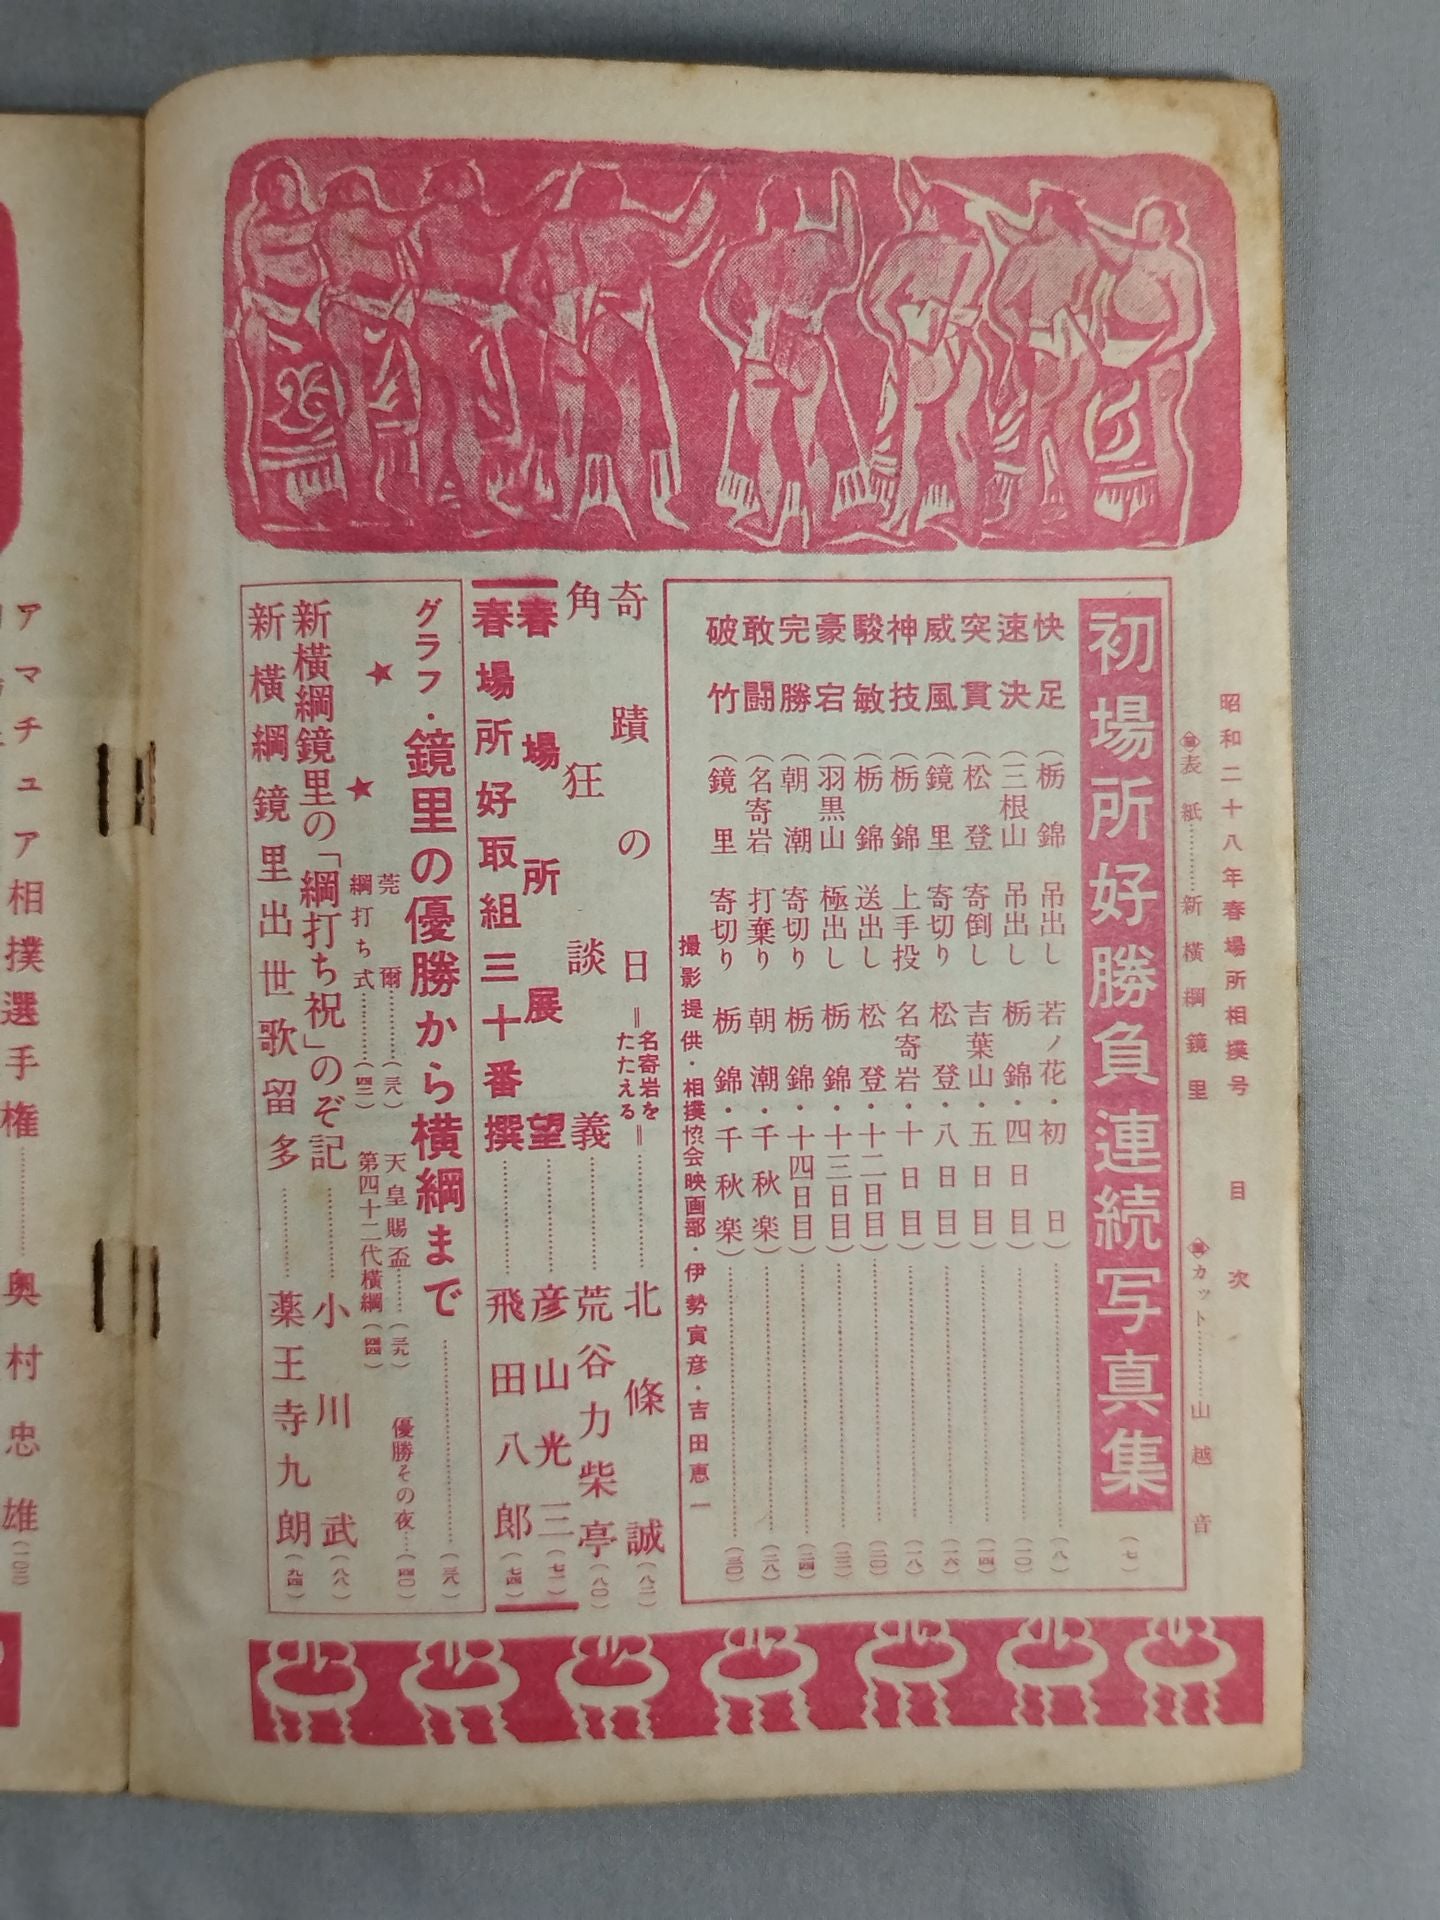 昭和二十八年春場所相撲号 目次
表紙…………新横綱鏡里
カット…………山越音
初場所好勝負連続写真集
(七)
快足(栃錦 吊出し 若ノ花・初日)…………(八)
速決(三根山 吊出し 栃錦・四日目)…………(一〇)
突貫(松登 寄倒し 吉葉山・五日目)…………(一四)
威風(鏡里 寄切り 松登・八日目)…………(一六)
神技(栃錦 上手投 名寄岩・十日目)…………(一八)
駿敏(栃錦 送出し 松登・十二日目)…………(二〇)
豪宕(羽黒山 極出し 栃錦・十三日目)…………(二二)
完勝(朝潮 寄切り 栃錦・十四日目)…………(二四)
敢闘(名寄岩 打棄り 朝潮・千秋楽)…………(二八)
破竹(鏡里 寄切り 栃錦・千秋楽)…………(三〇)
撮影提供・相撲協会映画部・伊勢寅彦・吉田恵一
奇蹟の日=名寄岩をたたえる=…………北條誠(八二)
角狂談義…………荒谷力柴亭(八〇)
春場所展望…………彦山光三(七二)
春場所好取組三十番撰…………飛田八郎(七四)
グラフ・鏡里の優勝から横綱まで…………(三八)
★莞爾…………(三八) 天皇賜盃……(三九) 優勝その夜…(四〇)
★綱打ち式…………(四二) 第四十二代横綱(四四)
新横綱鏡里の「綱打ち祝」のぞ記…………小川武(八八)
新横綱鏡里出世歌留多…………薬王寺九朗(九四)
アマチュア相撲選手権…………奥村忠雄(一〇二)